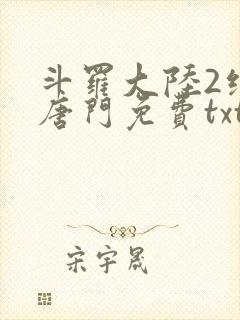 斗羅大陸2
唐門免費txt
宋宇晟